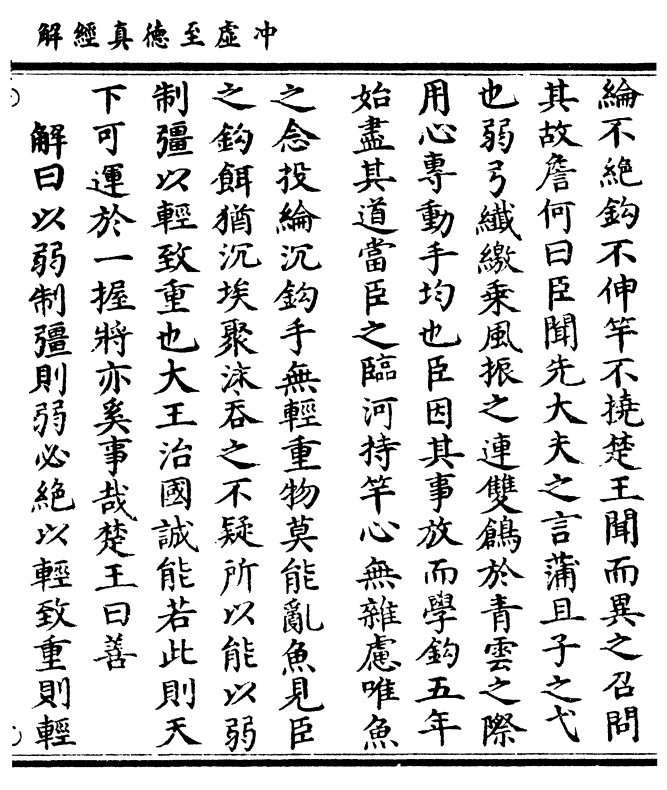 冲虛至德真經解
綸不絕鈎不伸竿不撓楚王聞而異之召問
其故詹何曰臣聞先大夫之言蒲且子之弋
也弱弓纖繳乗風振之連雙鶬於青雲之際
用心專動手均也臣因其事放而學鈎五年
始盡其道當臣之臨河持竿心無雜慮唯魚
之念投綸沉鈎手無輕重物莫能亂魚見臣
之鈎餌猶沉埃聚沬吞之不疑所以能以弱
制彊以輕致重也大王治國誠能若此則天
下可運於一握將亦奚事哉楚王曰善
解曰以弱制彊則弱必絕以輕致重則輕